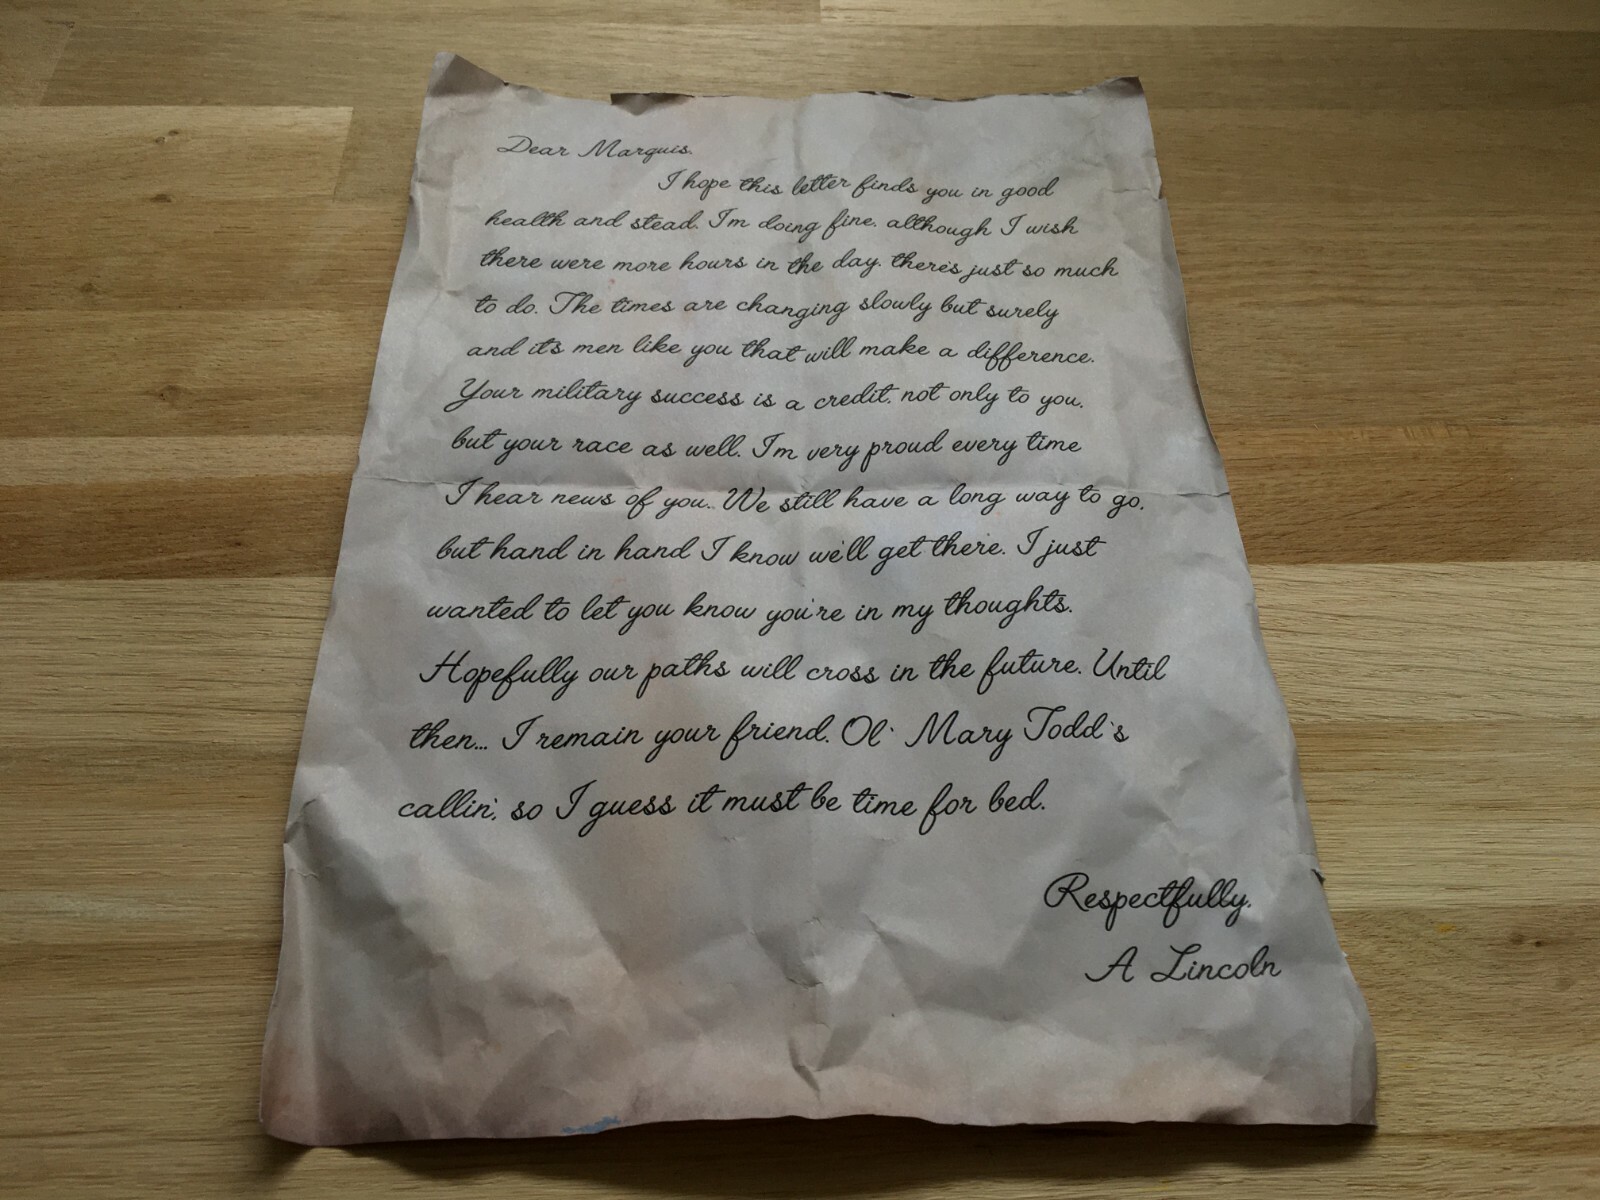 Dear Marquis,
I hope this letter finds you in good
health and stead. I'm doing fine, although I wish
there were more hours in the day, there's just so much
to do. The times are changing slowly but surely
and it's men like you that will make a difference.
Your military success is a credit, not only to you,
but your race as well. I'm very proud every time
I hear news of you. We still have a long way to go,
but hand in hand I know we'll get there. I just
wanted to let you know you're in my thoughts.
Hopefully our paths will cross in the future. Until
then... I remain your friend. Ol' Mary Todd's
callin', so I guess it must be time for bed.
Respectfully,
A Lincoln